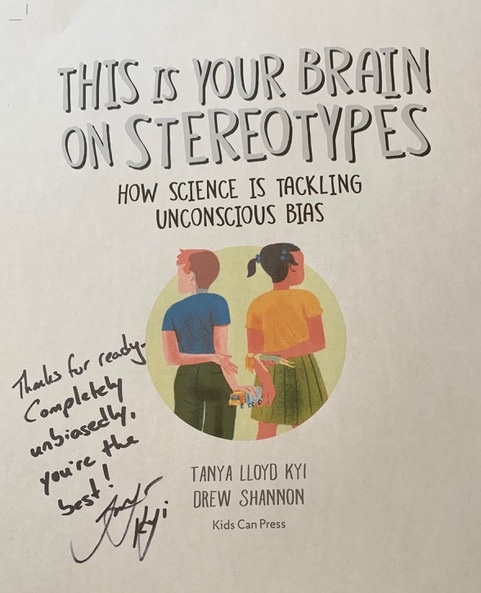 THIS IS YOUR BRAIN
ON STEREOTYPES
HOW SCIENCE IS TACKLING
UNCONSCIOUS BIAS
Thanks for ready.
Completely
unbiasedly,
you're the
best!
Kyi
TANYA LLOYD KYI
DREW SHANNON
Kids Can Press